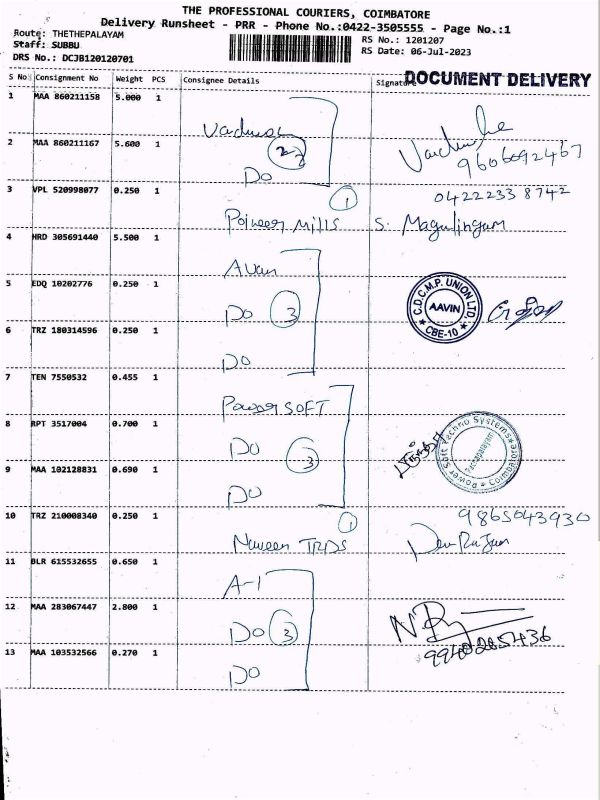 THE PROFESSIONAL COURIERS, COIMBATORE
Delivery Runsheet - PRR - Phone No.:0422-3505555 - Page No.:1
Route: THETHEPALAYAM
Staff: SUBBU
DRS No.: DCJB120120701
RS No.: 1201207
RS Date: 06-Jul-2023
S No Consignment No Weight PCS Consignee Details Signature
DOCUMENT DELIVERY
1 MAA 860211158 5.000 1
2 MAA 860211167 5.600 1 Do
9606092467
3 VPL 520998077 0.250 1 Poineer Mills 1
04222233 8742
S. Magulingam
4 HRD 305691440 5.500 1 Avan
5 EDQ 10202776 0.250 1 Do 3
C.D.C.M.P. UNION LTD.
AAVIN
★ CBE-10 ★
6 TRZ 180314596 0.250 1 Do
7 TEN 7550532 0.455 1 Power SOFT
8 RPT 3517004 0.700 1 Do 3
Power Soft Techno Systems ★ Coimbatore ★
9 MAA 102128831 0.690 1 Do
10 TRZ 210008340 0.250 1 Naveen TRDS 1
9865043930
11 BLR 615532655 0.650 1 A-1
12 MAA 283067447 2.800 1 Do 3
13 MAA 103532566 0.270 1 Do